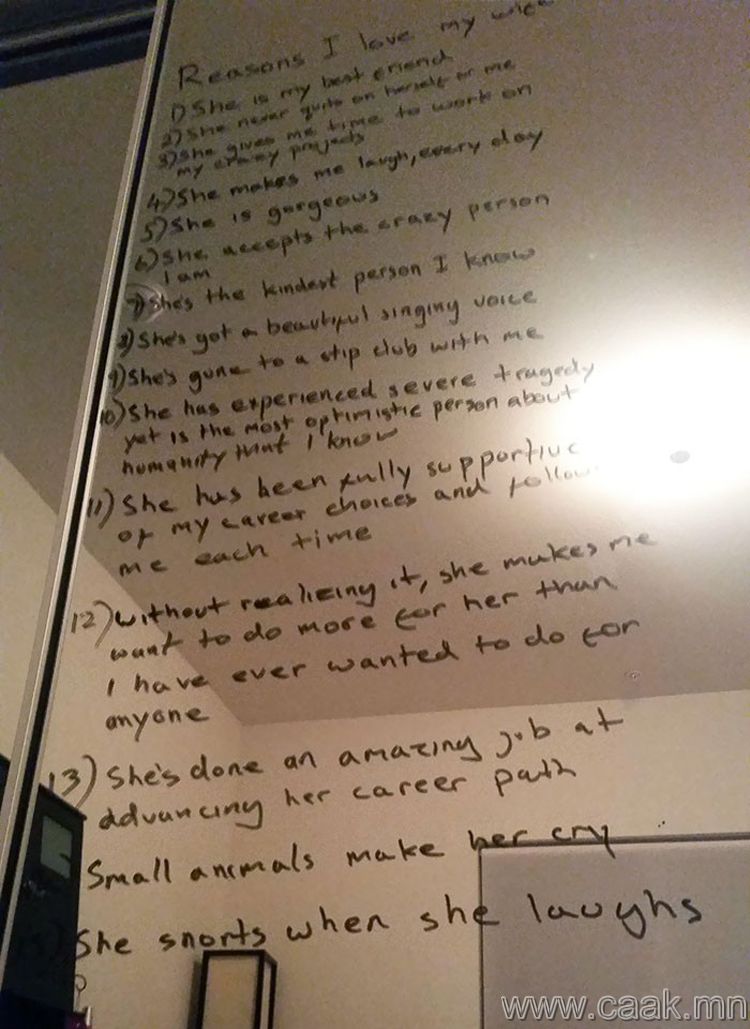 Reasons I love my wife
1) She is my best friend
2) She never quits on herself or me
3) She gives me time to work on
my crazy projects
4) She makes me laugh, every day
5) She is gorgeous
6) She accepts the crazy person
I am
7) She's the kindest person I know
8) She's got a beautiful singing voice
9) She's gone to a stip club with me
10) She has experienced severe tragedy
yet is the most optimistic person about
humanity that I know
11) She has been fully supportive
of my career choices and follow
me each time
12) Without realizing it, she makes me
want to do more for her than
I have ever wanted to do for
anyone
13) She's done an amazing job at
advancing her career path
Small animals make her cry
She snorts when she laughs
www.caak.mn